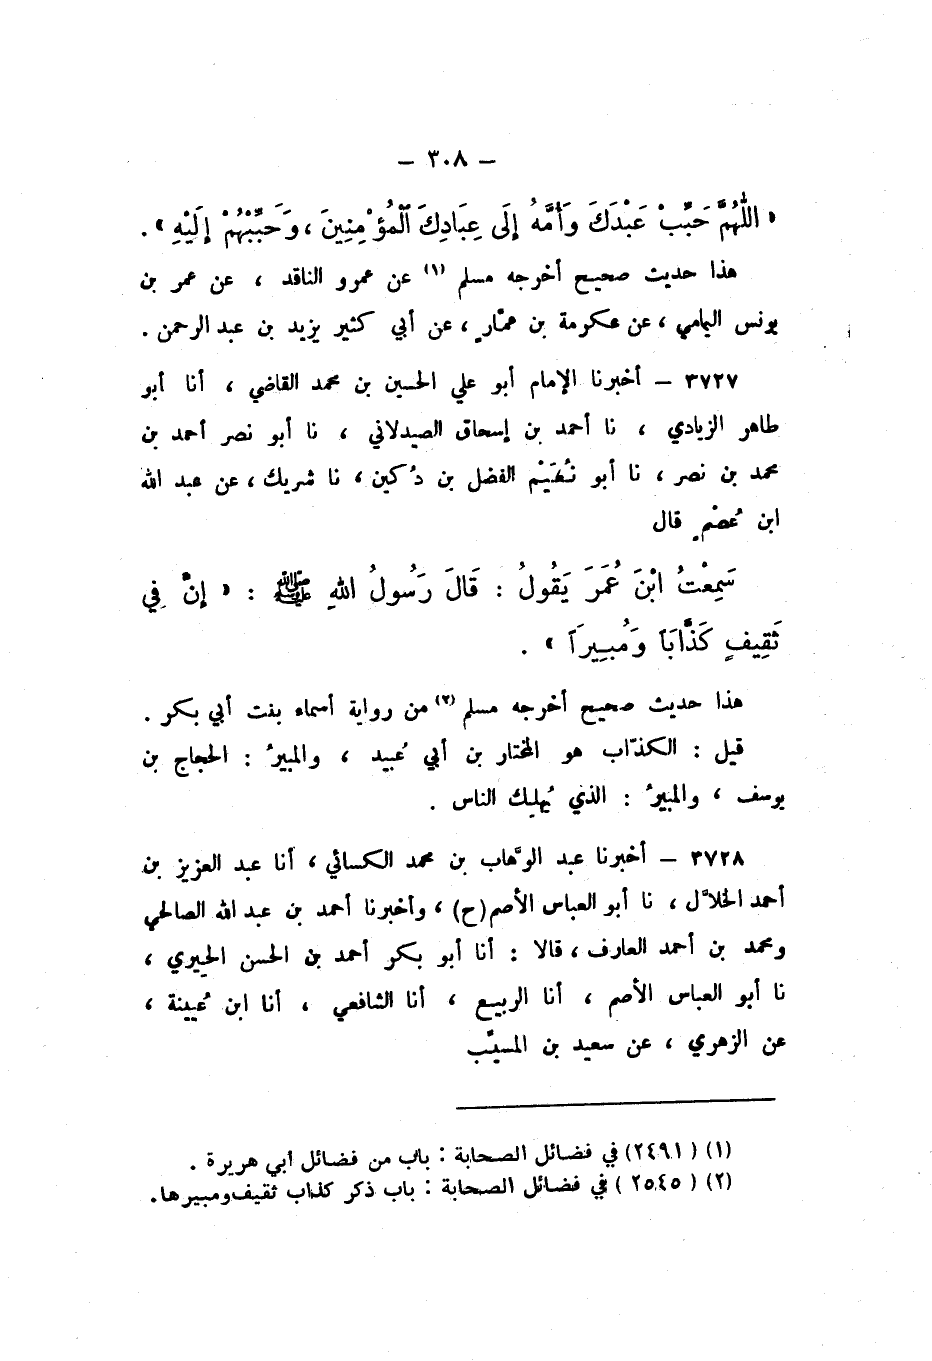 — ٣٠٨ —
« اللّٰهُمَّ حَبِّبْ عَبْدَكَ وَأُمَّهُ إِلَى عِبَادِكَ الْمُؤْمِنِينَ ، وَحَبِّبْهُمْ إِلَيْهِ » .
هذا حديث صحيح أخرجه مسلم (١) عن عمرو الناقد ، عن عمر بن
يونس اليامي ، عن عكرمة بن عمّارٍ ، عن أبي كثير يزيد بن عبد الرحمن .
٣٧٢٧ — أخبرنا الإمام أبو علي الحسين بن محمد القاضي ، أنا أبو
طاهر الزيادي ، نا أحمد بن إسحاق الصيدلاني ، نا أبو نصر أحمد بن
محمد بن نصر ، نا أبو نُعَيْم الفضل بن دُكين ، نا شريك ، عن عبد الله
ابن عُصْمٍ قال
سَمِعْتُ ابْنَ عُمَرَ يَقُولُ : قَالَ رَسُولُ اللهِ ﷺ : « إِنَّ فِي
ثَقِيفٍ كَذَّابَاً وَمُبِيرَاً » .
هذا حديث صحيح أخرجه مسلم (٢) من رواية أسماء بنت أبي بكر .
قيل : الكذّاب هو المختار بن أبي عُبيد ، والمبيرُ : الحجاج بن
يوسف ، والمبيرُ : الذي يُهلِك الناس .
٣٧٢٨ — أخبرنا عبد الوهَّاب بن محمد الكسائي ، أنا عبد العزيز بن
أحمد الخلاَّل ، نا أبو العباس الأصم (ح) ، وأخبرنا أحمد بن عبد الله الصالحي
ومحمد بن أحمد العارف ، قالا : أنا أبو بكر أحمد بن الحسن الحِيري ،
نا أبو العباس الأصم ، أنا الربيع ، أنا الشافعي ، أنا ابن عُيينة ،
عن الزهري ، عن سعيد بن المسيَّب
(١) ( ٢٤٩١) في فضائل الصحابة : باب من فضائل أبي هريرة .
(٢) ( ٢٥٤٥ ) في فضائل الصحابة : باب ذكر كذاب ثقيف ومبيرها .